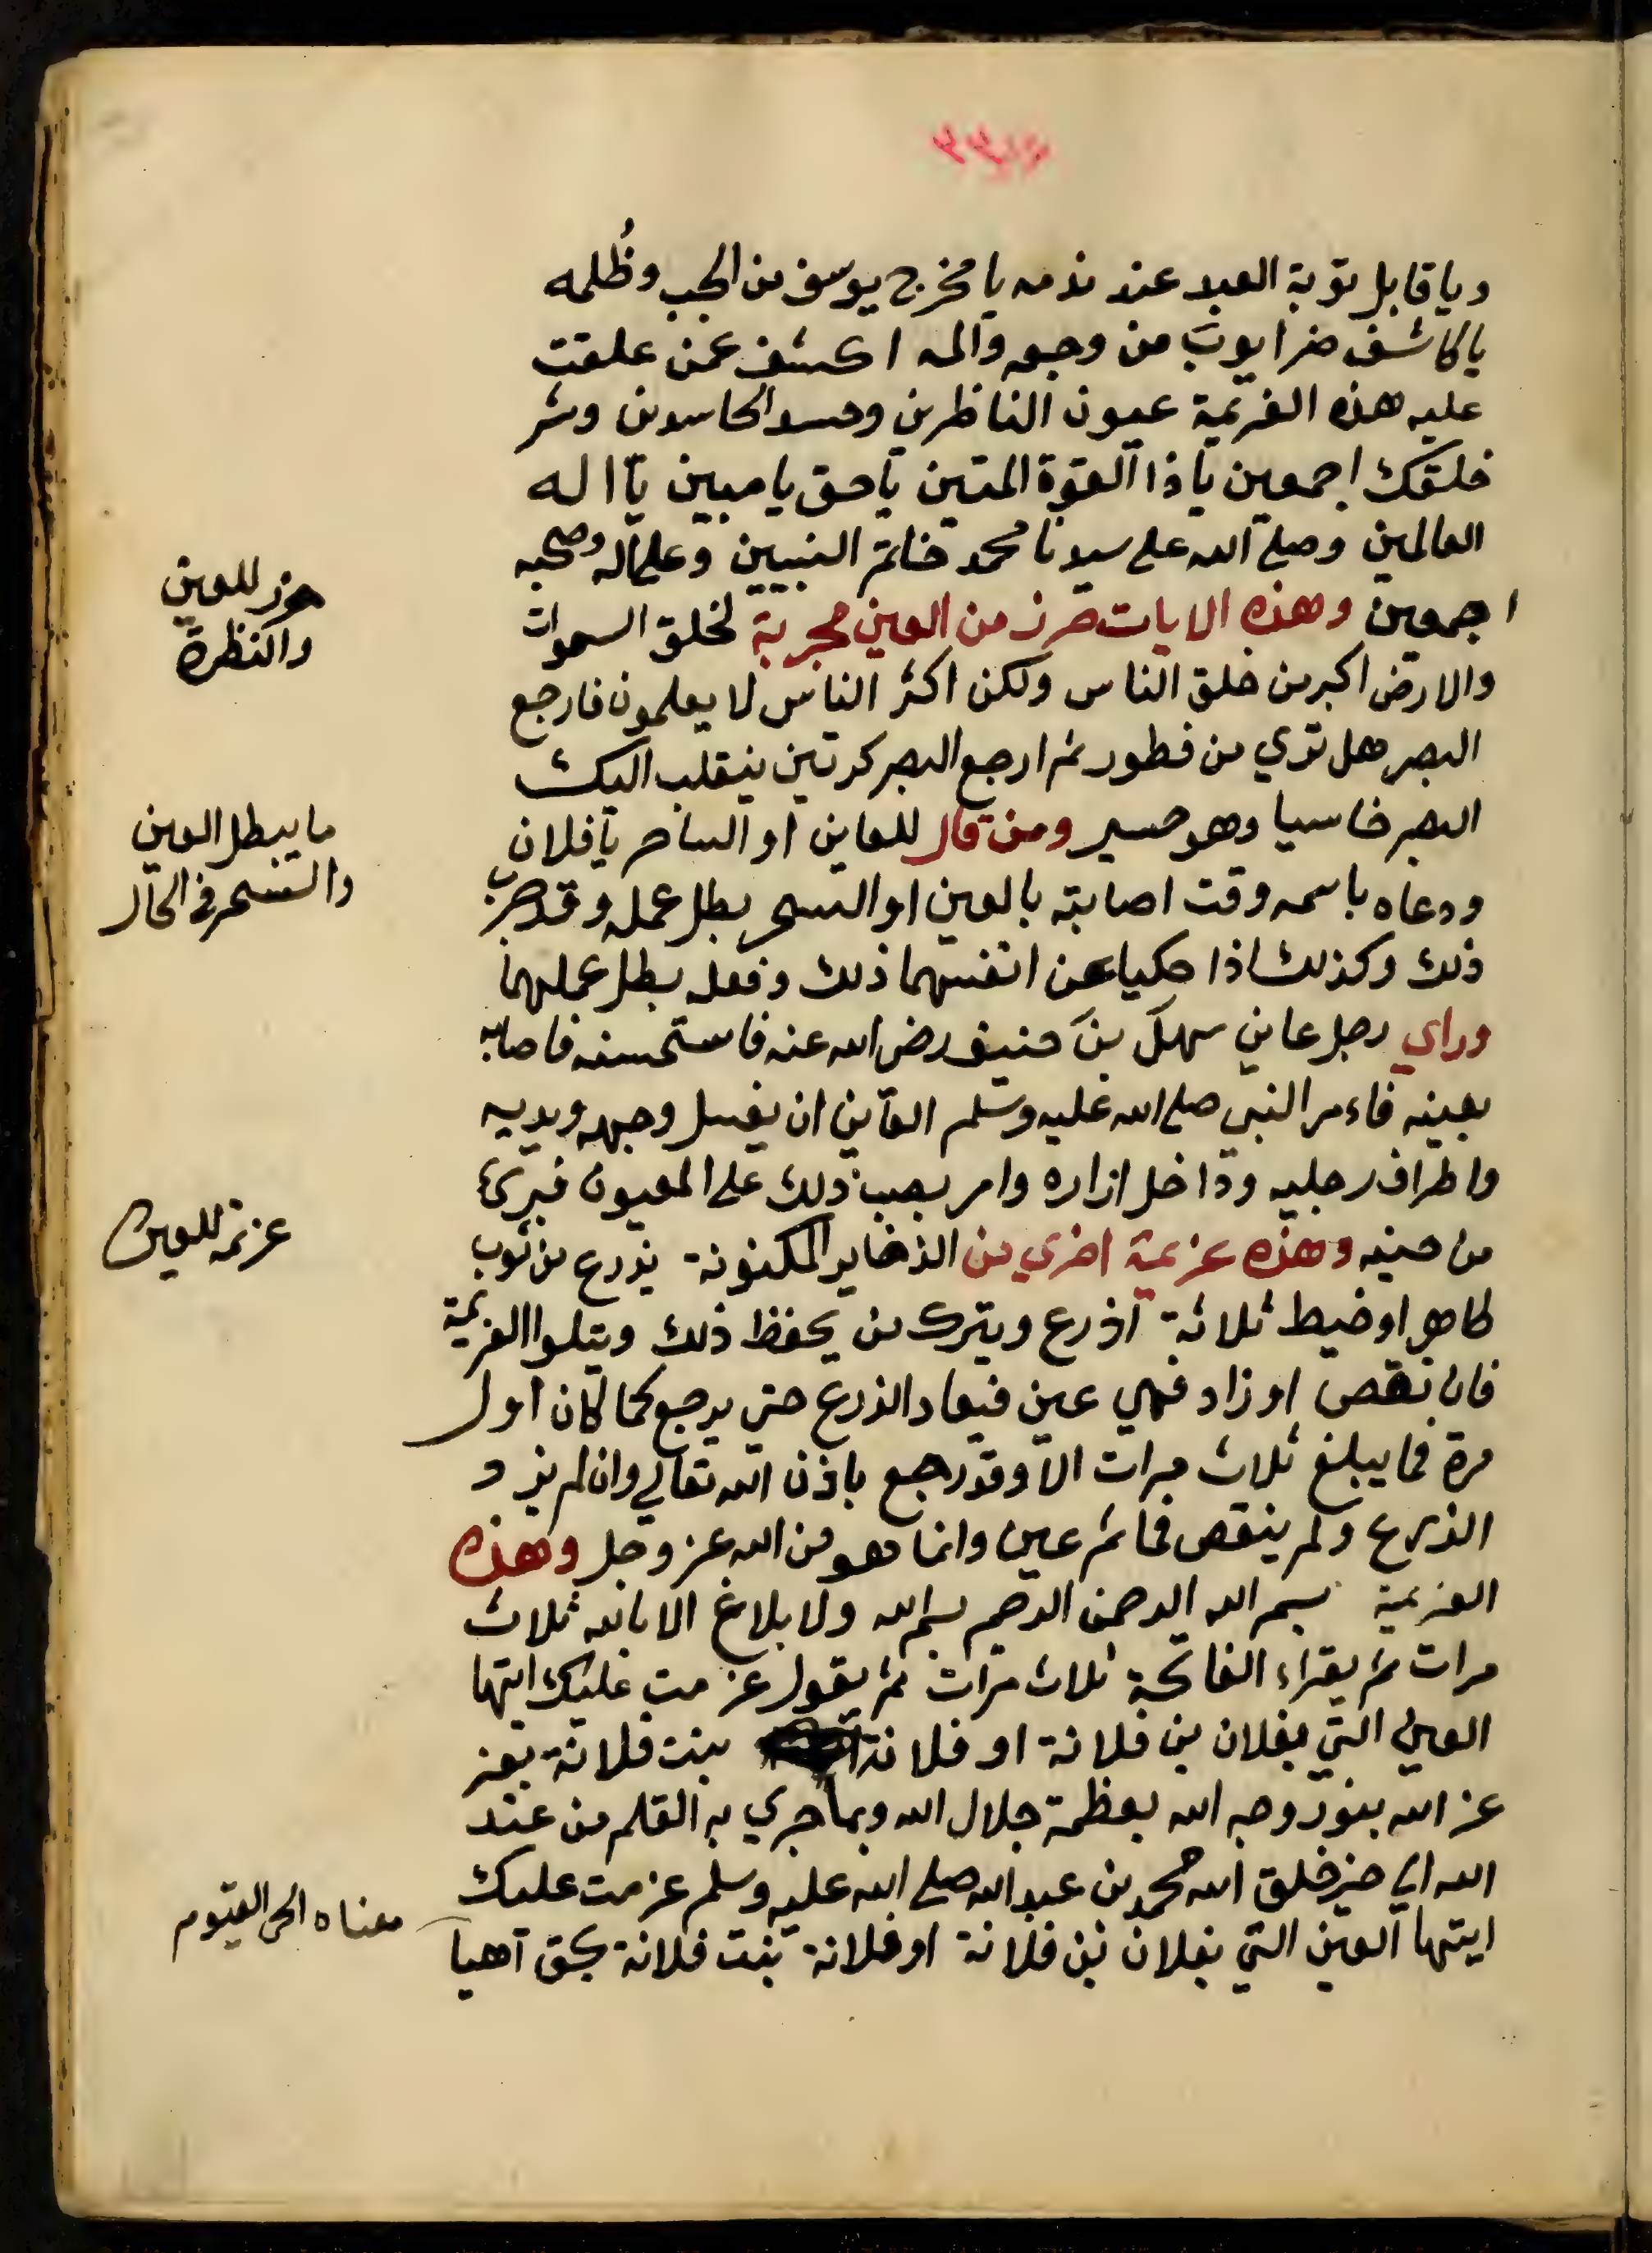 ويا قابل توبة العبد عند ندمه يا مخرج يوسف من الجب وظُلمه
يا كاشف ضر ايوب من وجعه والمه اكشف عمن علقت
عليه هذه العزيمة عيون الناظرين وحسد الحاسدين وشر
خلقك اجمعين يا ذا القوة المتين يا حق يا مبين يا اله
العالمين وصلى الله على سيدنا محمد خاتم النبيين وعلى اله وصحبه
اجمعين وهذه الايات حرز من العين مجربة لخلق السموات
حرز للعين
والنظرة
والارض اكبر من خلق الناس ولكن اكثر الناس لا يعلمون فارجع
البصر هل تري من فطور ثم ارجع البصر كرتين ينقلب اليك
البصر خاسيا وهو حسير ومن قال للعاين او الساحر يا فلان
ما يبطل العين
والسحر في الحال
ودعاه باسمه وقت اصابته بالعين او السحر بطل عمله وقد جرب
ذلك وكذلك اذا حكيا عن انفسهما ذلك وفعله بطل عملهما
وراي رجل عاين سهل بن حنيف رضى الله عنه فاستحسنه فاصابه
بعينه فاءمر النبي صلى الله عليه وسلم العاين ان يغسل وجهه ويديه
واطراف رجليه وداخل ازاره وامر بصب ذلك على المعيون فبرئ
من حينه وهذه عزيمة اخري من الذخاير المكنونة يذرع من ثوب
عزيمة للعين
طاهر او خيط ثلاثة اذرع ويترك من يحفظ ذلك ويتلوا العزيمة
فان نقص او زاد فهي عين فيعاد الذرع حتي يرجع كما كان اول
مرة فما يبلغ ثلاث مرات الا وقد رجع باذن الله تعالي وان لم يزد
الذرع ولم ينقص فما ثم عين وانما هو من الله عز وجل وهذه
العزيمة بسم الله الرحمن الرحيم بسم الله ولا بلاغ الا بالله ثلاث
مرات ثم يقراء الفاتحة ثلاث مرات ثم يقول عزمت عليك ايتها
العين التي بفلان بن فلانة او فلانة بنت فلانة بعز
عز الله بنور وجه الله بعظمة جلال الله وبما جري به القلم من عند
الله الي خير خلق الله محمد بن عبد الله صلى الله عليه وسلم عزمت عليك
ايتها العين التي بفلان بن فلانة او فلانة بنت فلانة بحق آهيا
معناه الحى القيوم